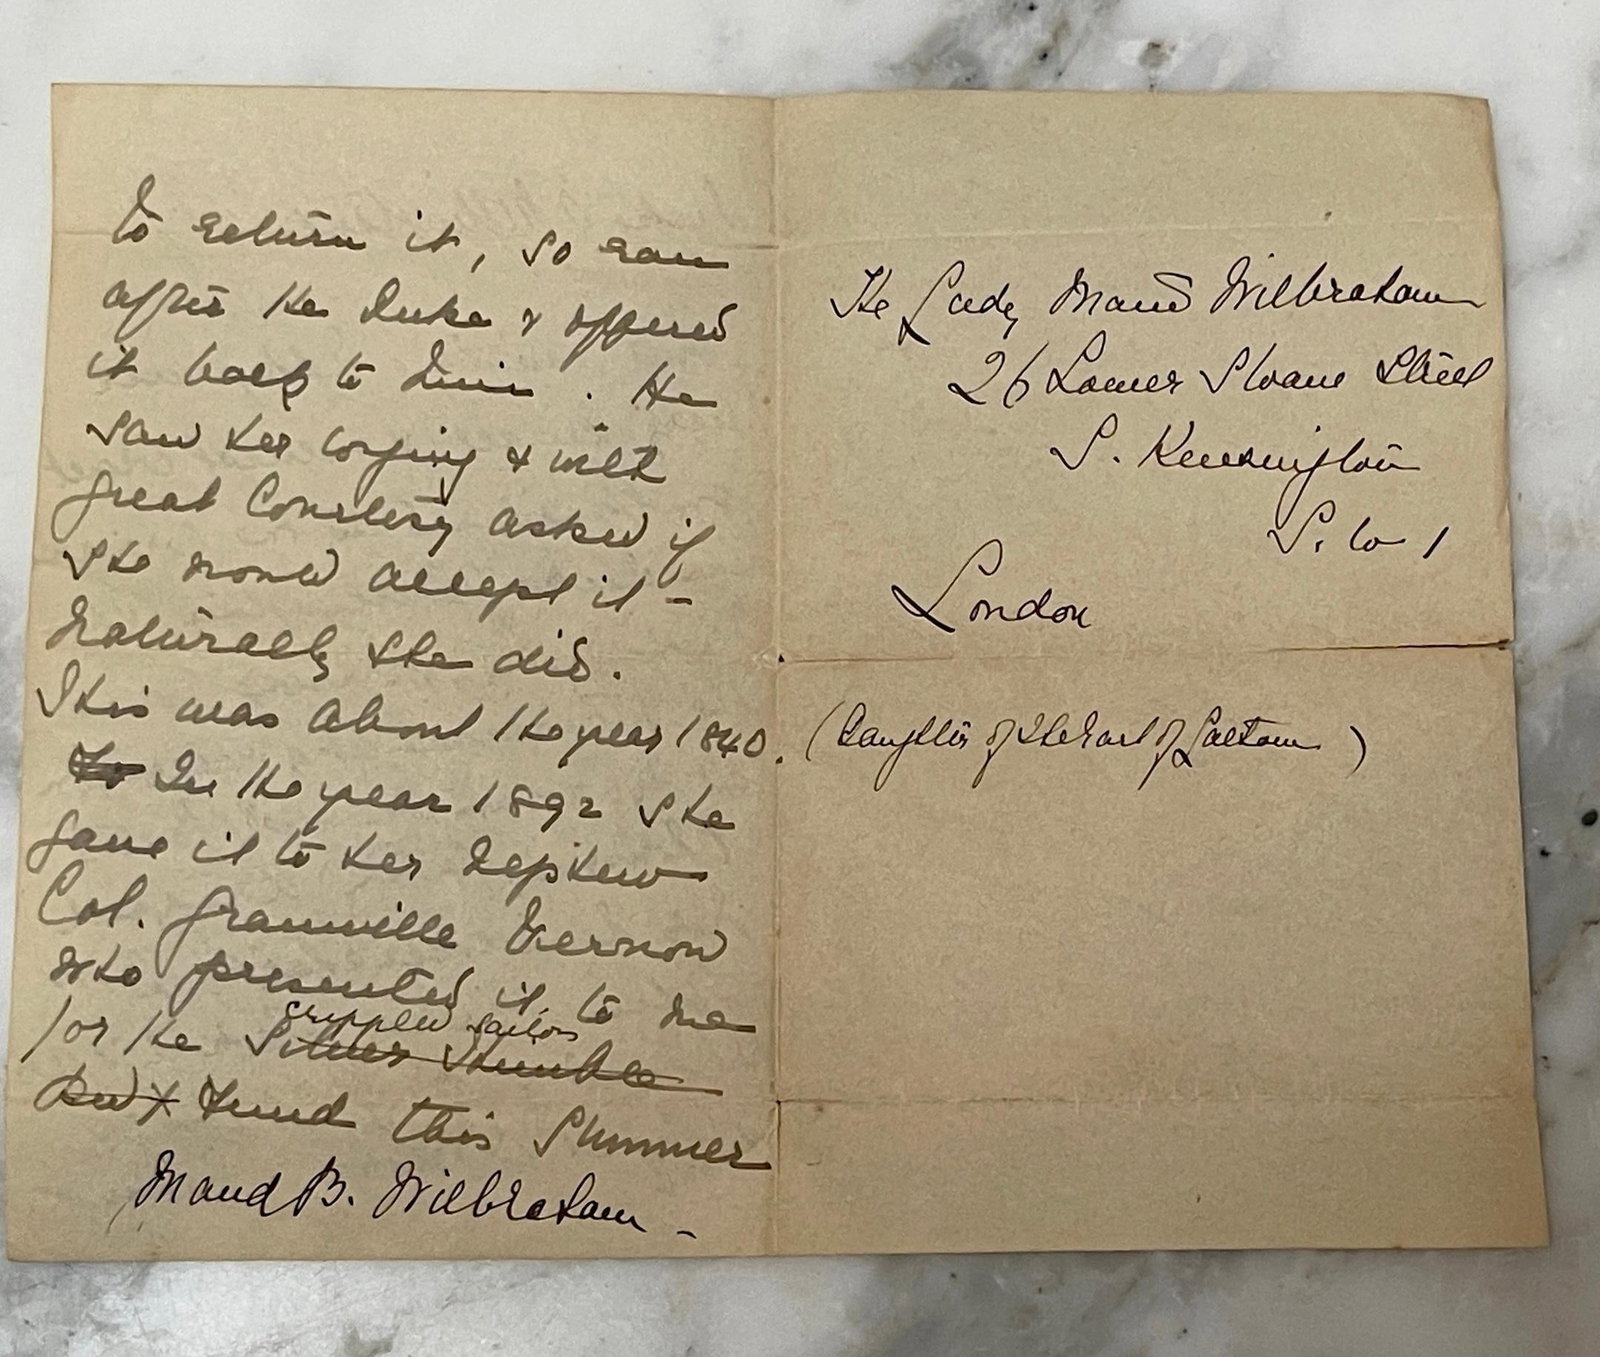 to return it, so ran
after the Duke & offered
it back to him. He
saw her crying & with
great Courtesy asked if
she would accept it -
Naturally she did.
This was about the year 1840.
To In the year 1892 she
gave it to her nephew
Col. Granville Vernon
who presented it to me
crippled sailors
for the Silver Thimble
Fund this Summer
Maud B. Wilbraham -
The Lady Maud Wilbraham
26 Lower Sloane Street
S. Kensington
S. W 1
London
(Daughter of the Earl of Lathom)